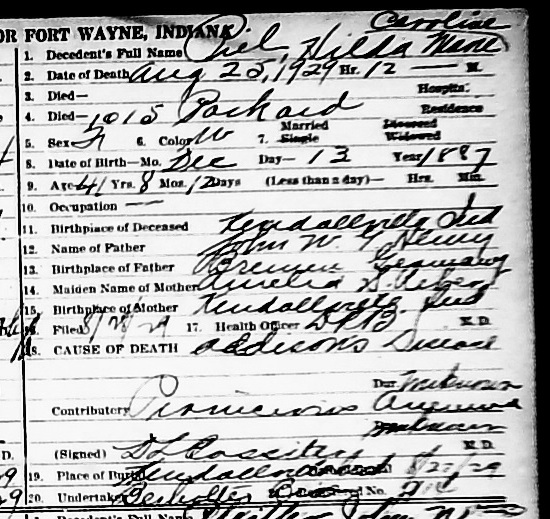 OR FORT WAYNE, INDIANA
Caroline
1. Decedent's Full Name Piel, Hilda Marie
2. Date of Death Aug 25, 1929 Hr. 12 — M.
3. Died— Hospital
4. Died— 1015 Packard Residence
5. Sex F 6. Color W 7. Married Single Divorced Widowed
8. Date of Birth—Mo. Dec Day— 13 Year 1887
9. Age 41 Yrs. 8 Mos. 12 Days (Less than a day)— Hrs. Min.
10. Occupation —
11. Birthplace of Deceased Kendallville Ind
12. Name of Father John W. Henry
13. Birthplace of Father Bremen Germany
14. Maiden Name of Mother Amelia
15. Birthplace of Mother Kendallville Ind
16. Filed 8/28/29 17. Health Officer M.D.
18. CAUSE OF DEATH Addisons Disease
Dur. Unknown
Contributory Pernicious Anemia
Unknown
(Signed) M.D.
19. Place of Burial Kendallville 8/27/29
20. Undertaker No.
Decedent's Full Name